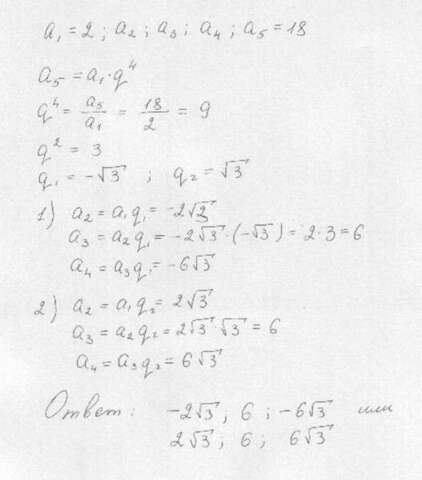 a₁ = 2 ; a₂ ; a₃ ; a₄ ; a₅ = 18
a₅ = a₁ · q⁴
q⁴ = a₅/a₁ = 18/2 = 9
q² = 3
q₁ = -√3 ; q₂ = √3
1) a₂ = a₁q₁ = -2√3
a₃ = a₂q₁ = -2√3 · (-√3) = 2·3 = 6
a₄ = a₃q₁ = -6√3
2) a₂ = a₁q₂ = 2√3
a₃ = a₂q₂ = 2√3 · √3 = 6
a₄ = a₃q₂ = 6√3
Ответ: -2√3 ; 6 ; -6√3 или
2√3 ; 6 ; 6√3